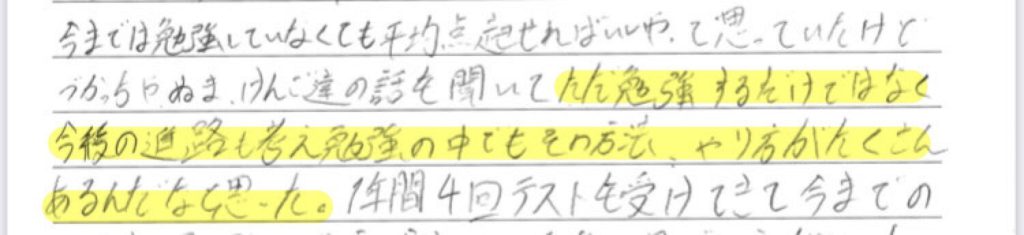 今までは勉強していなくても平均点越せればいいや、て思っていたけど
づかっちや、ぬま、けんご達の話を聞いてただ勉強するだけではなく
今後の進路も考え勉強の中でもその方法、やり方がたくさん
あるんだなと思った。1年間4回テストを受けてきて今までの